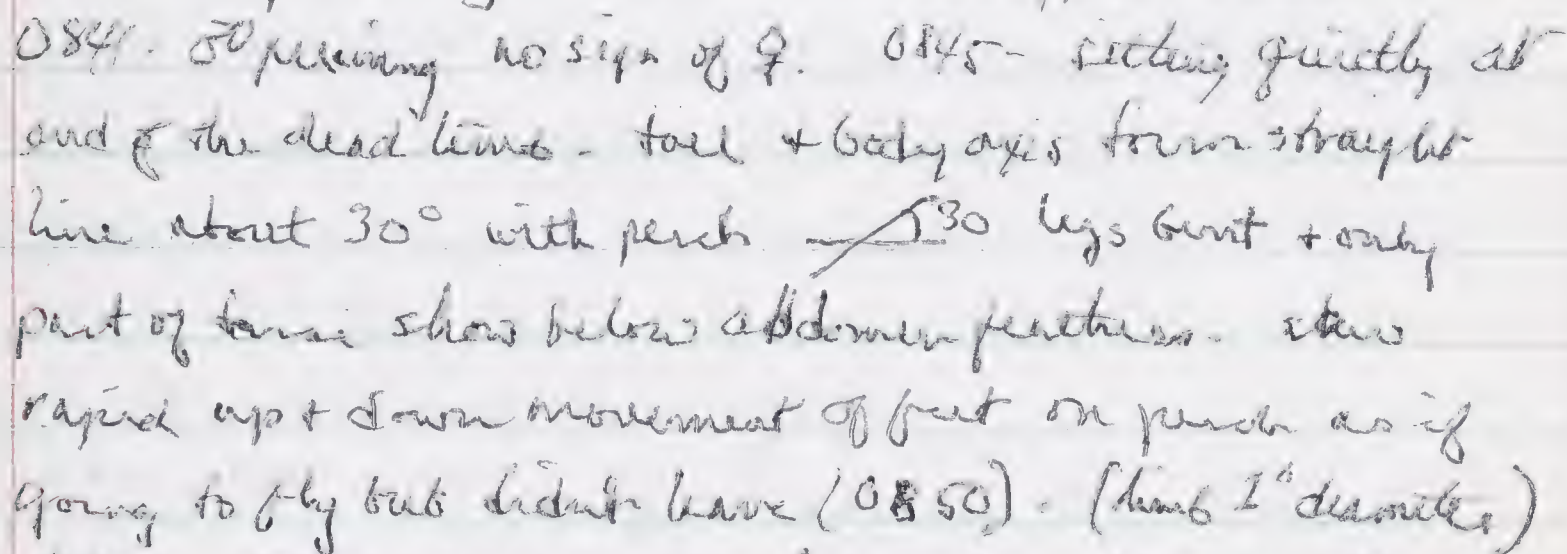 0841. ♂ preening no sign of ♀. 0845- sitting quietly at
end of the dead limb - tail + body axis form straight
line about 30° with perch 30 legs bent + only
part of tarsi show below abdomen feathers.
rapid up + down movement of feet on perch as if
going to fly but didn't leave (0850). (limb 1" diameter)